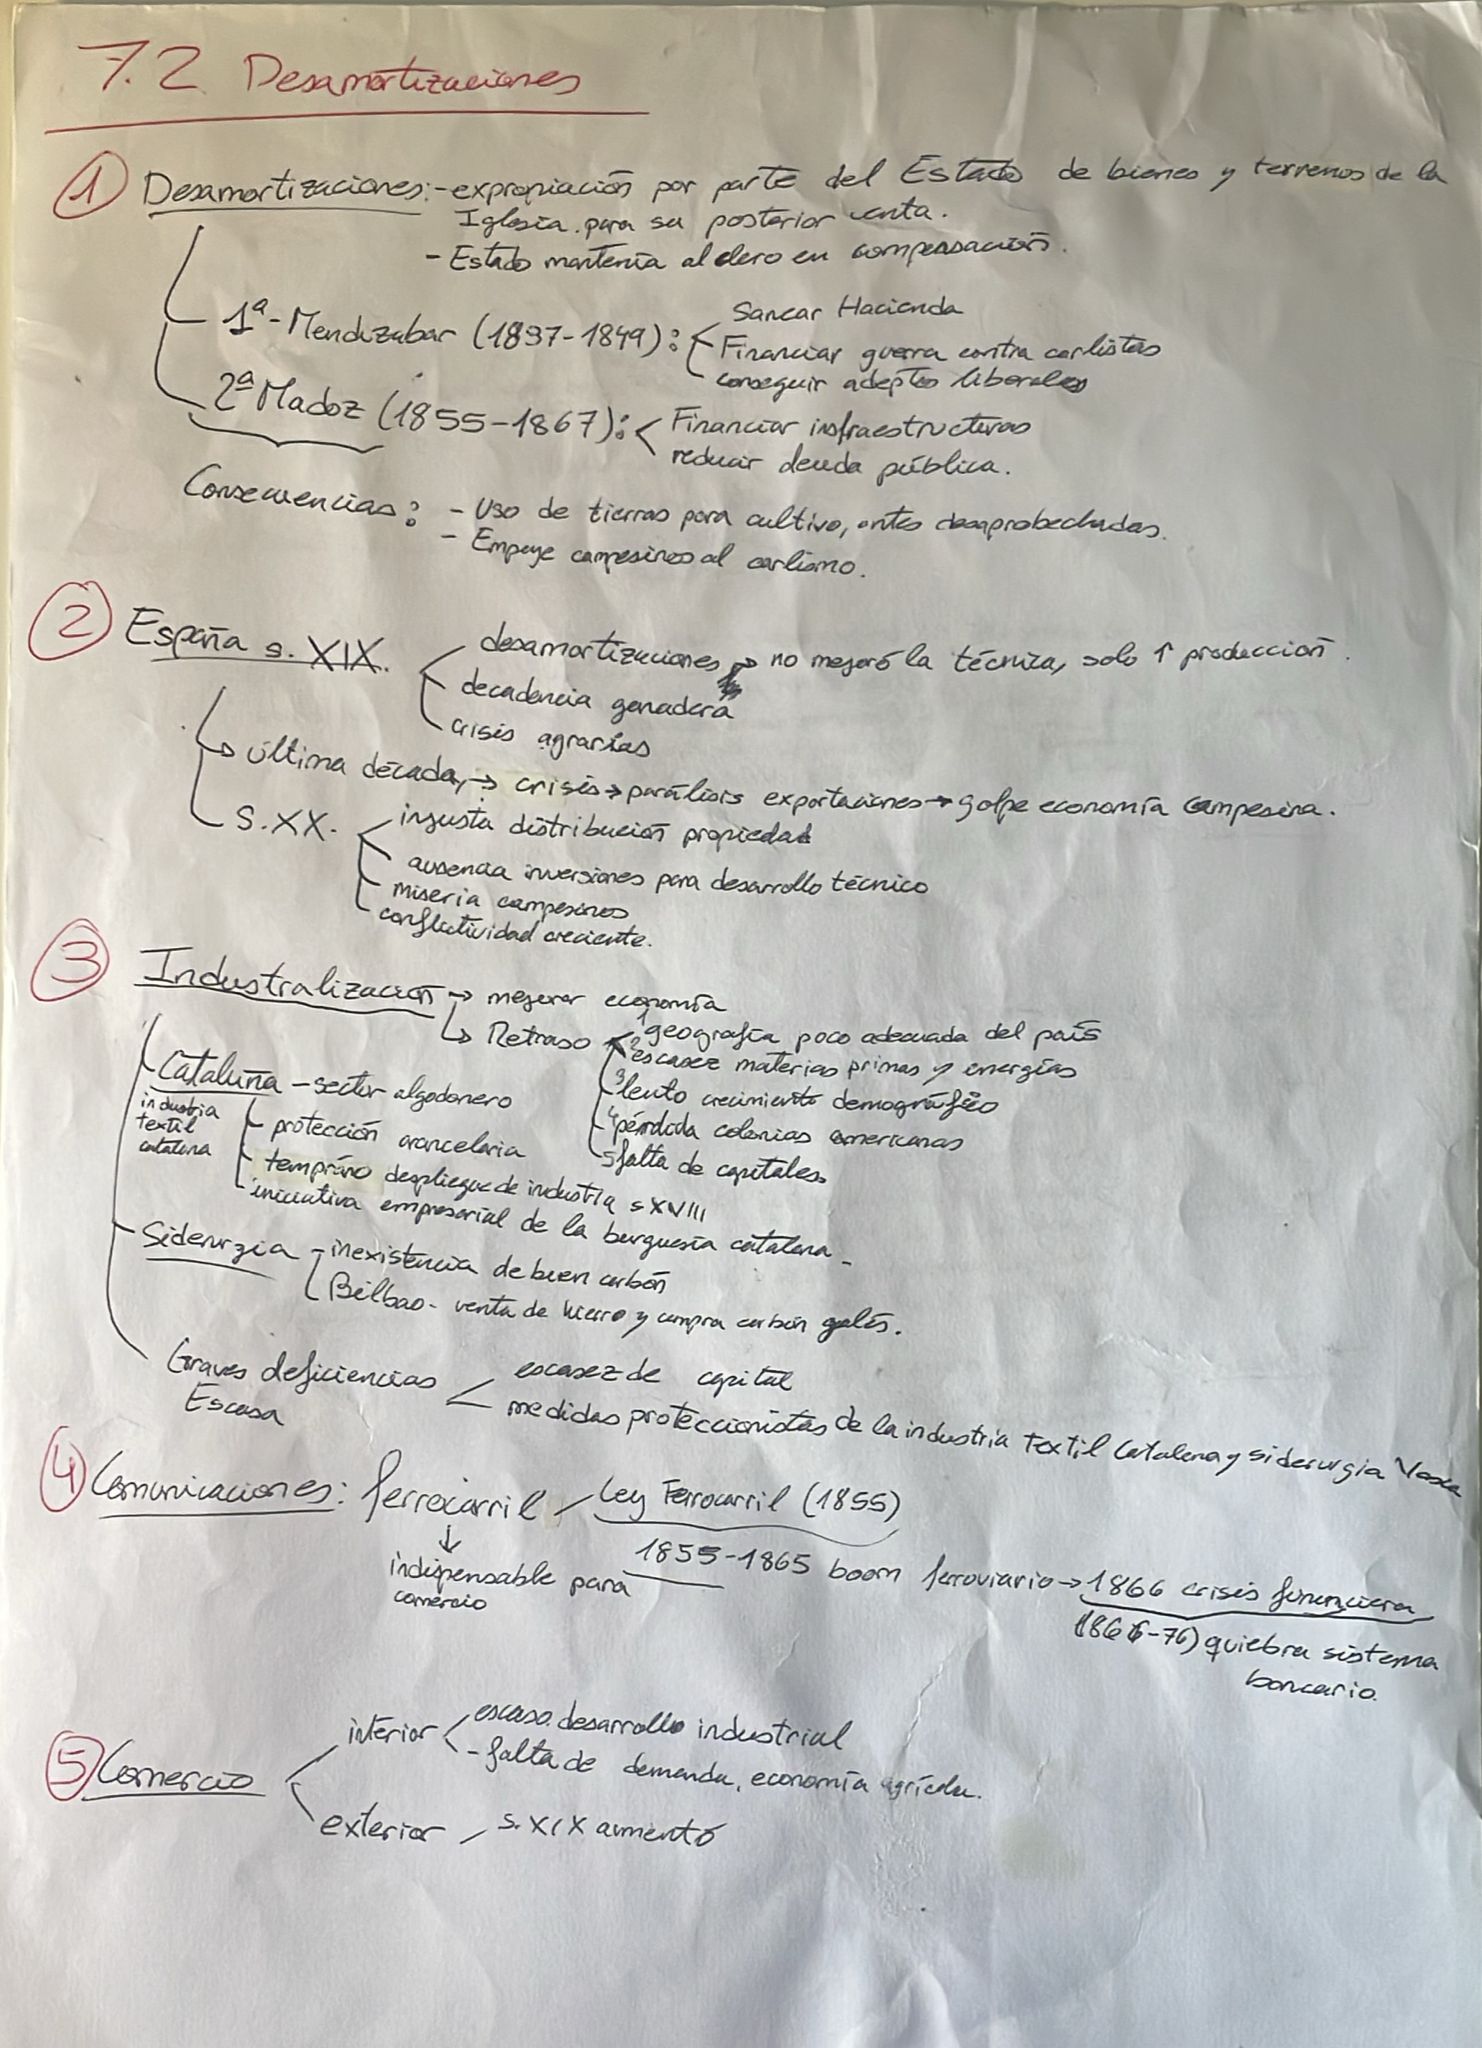 7.2 Desamortizaciones
① Desamortizaciones: - expropiación por parte del Estado de bienes y terrenos de la
Iglesia para su posterior venta.
- Estado mantenia al clero en compensación.
1ª - Mendizabar (1837-1849):
Sanear Hacienda
Financiar guerra contra carlistas
conseguir adeptos liberales
2ª Madoz (1855-1867):
Financiar infraestructuras
reducir deuda pública.
Consecuencias: - Uso de tierras para cultivo, antes desaprobechadas.
- Empuje campesinos al carlismo.
② España s. XIX.
desamortizaciones → no mejoró la técnica, solo ↑ producción.
decadencia ganadera
crisis agrarias
→ última década, → crisis → parálisis exportaciones → golpe economía campesina.
S.XX.
injusta distribución propiedad
ausencia inversiones para desarrollo técnico
miseria campesinos
conflictividad creciente.
③ Industralización → mejorar economía
↳ Retraso
1 geografía poco adecuada del país
2 escasez materias primas y energías
3 lento crecimiento demográfico
4 pérdida colonias americanas
5 falta de capitales
Cataluña - sector algodonero
industria
textil
catalana
protección arancelaria
temprano despliegue de industria s XVIII
iniciativa empresarial de la burguesía catalana.
Siderurgia - inexistencia de buen carbón
Bilbao - venta de hierro y compra carbón galés.
Graves deficiencias
Escasa
escasez de capital
medidas proteccionistas de la industria textil catalana y siderurgia Vasca
④ Comunicaciones: ferrocarril / Ley Ferrocarril (1855)
↓
indispensable para
comercio
1855-1865 boom ferroviario → 1866 crisis financiera
(1866-76) quiebra sistema
bancario.
⑤ Comercio
interior
escaso desarrollo industrial
- falta de demanda, economía agrícola.
exterior / s. XIX aumentó